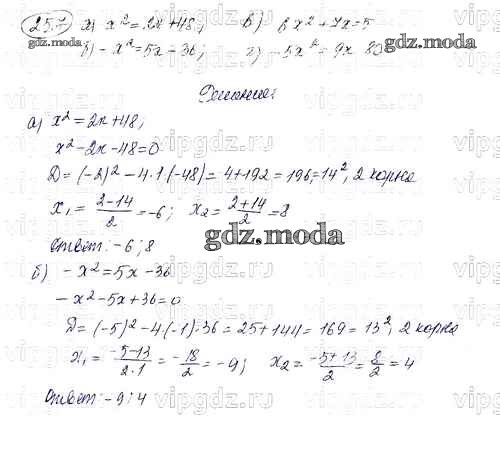 25.7 а) x² = 2x + 48; в) 6x² + 7x = 5
б) - x² = 5x - 36; г) - 5x² = 9x
gdz.moda
Решение:
а) x² = 2x + 48;
x² - 2x - 48 = 0
D = (-2)² - 4·1·(-48) = 4 + 192 = 196 = 14², 2 корня
x₁ = (2-14)/2 = -6; x₂ = (2+14)/2 = 8
Ответ: -6; 8
gdz.moda
б) - x² = 5x - 36
- x² - 5x + 36 = 0
D = (-5)² - 4(-1)·36 = 25 + 144 = 169 = 13², 2 корня
x₁ = (-5-13)/(2·1) = -18/2 = -9; x₂ = (-5+13)/2 = 8/2 = 4
Ответ: -9; 4
vipgdz.ru